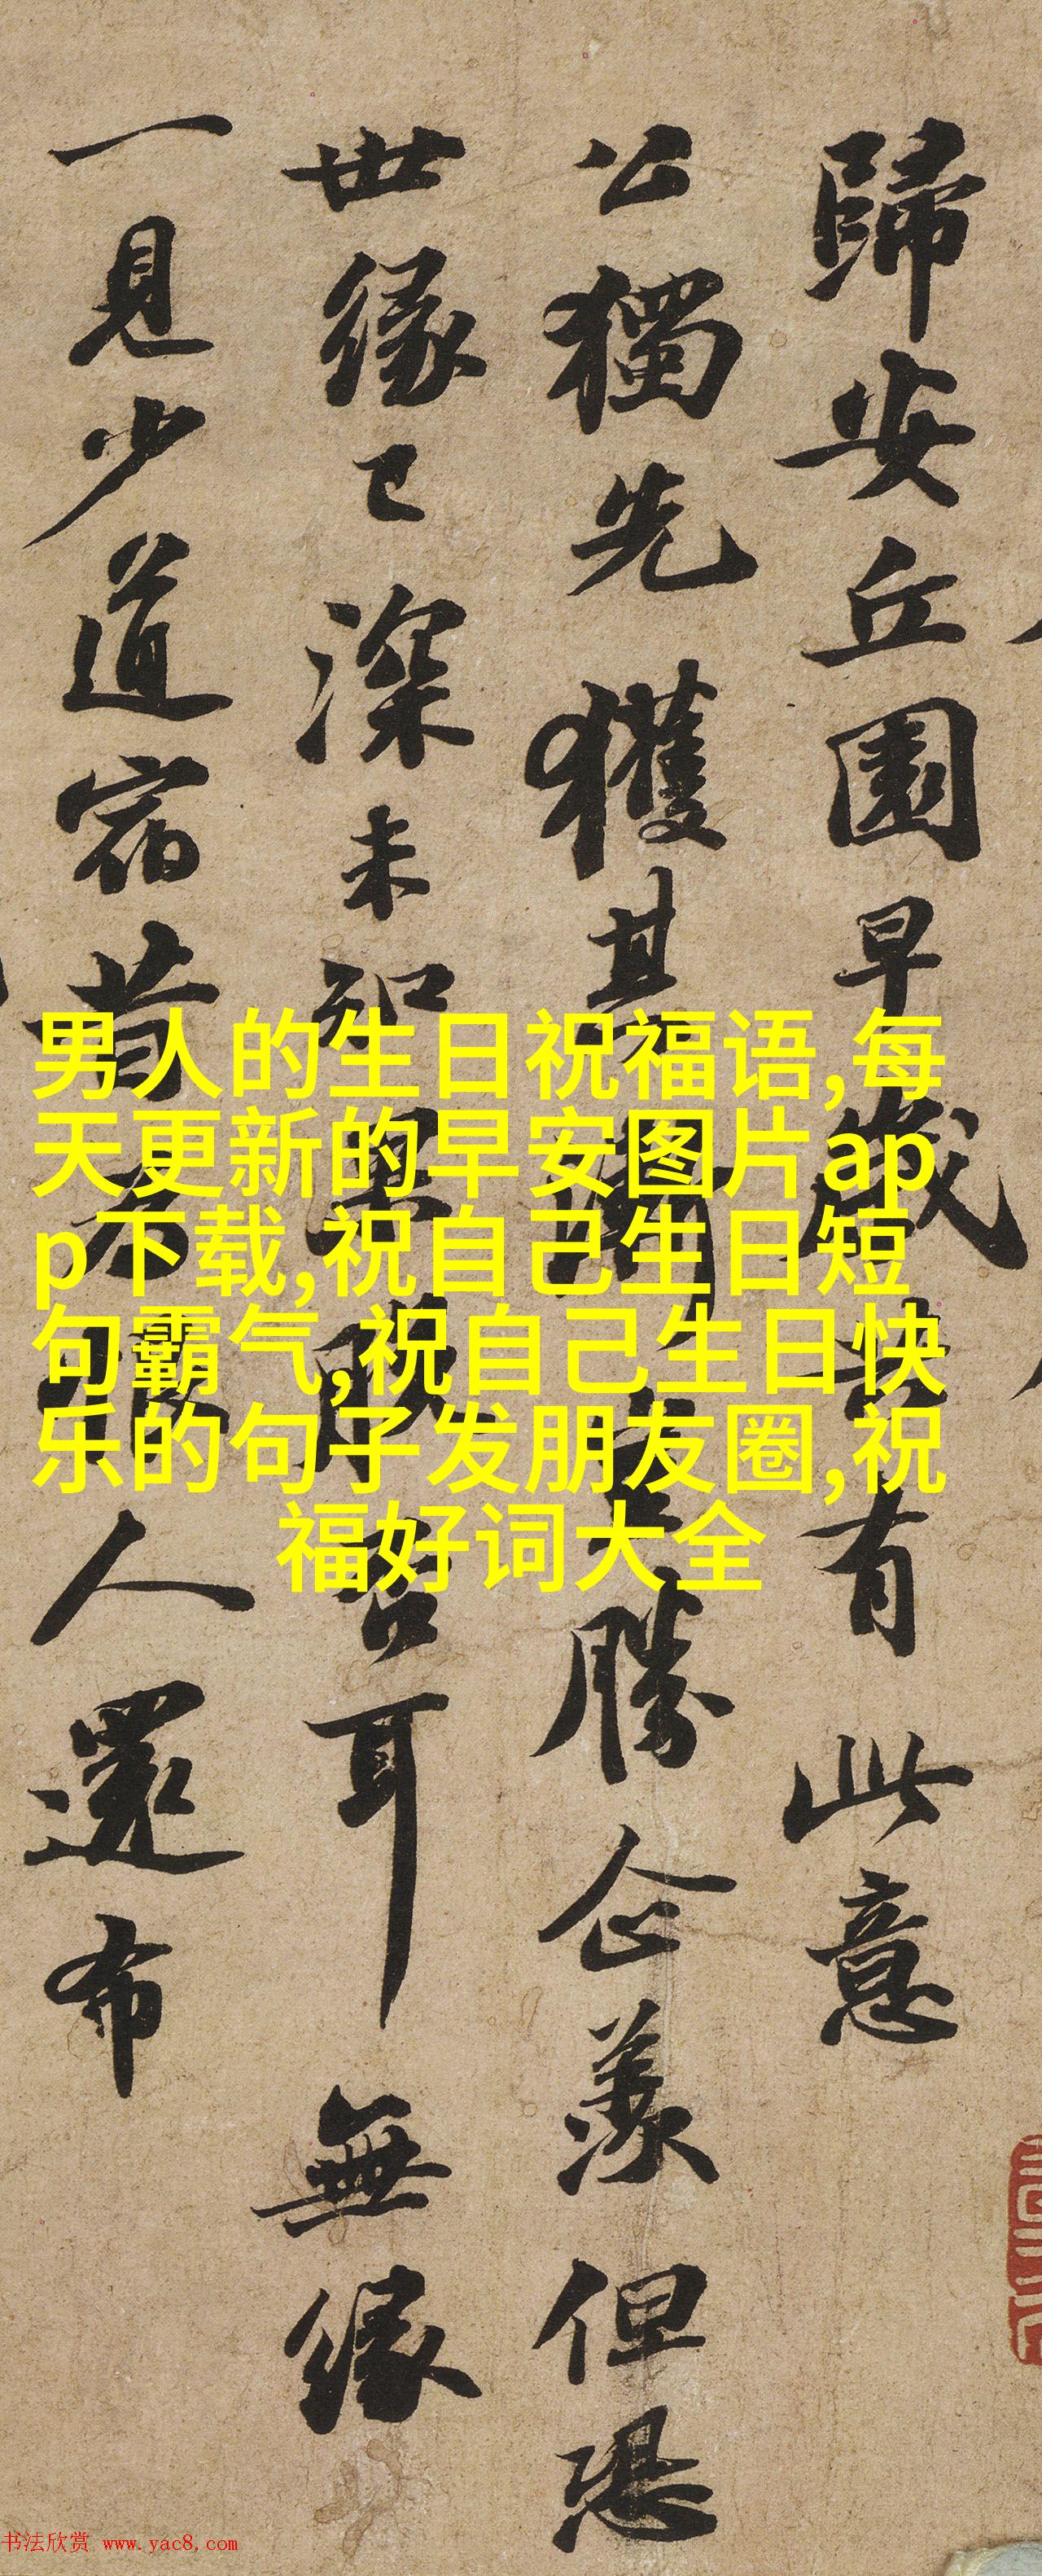 歸安丘園早歲共有此意
公獨先獲其漸豈勝企羨但恐
世緣已深未知果脫否耳無緣
一見少道宿昔為恨人還布
男人的生日祝福语,每
天更新的早安图片ap
p下载,祝自己生日短
句霸气,祝自己生日快
乐的句子发朋友圈,祝
福好词大全
书法欣赏 www.yac8.com